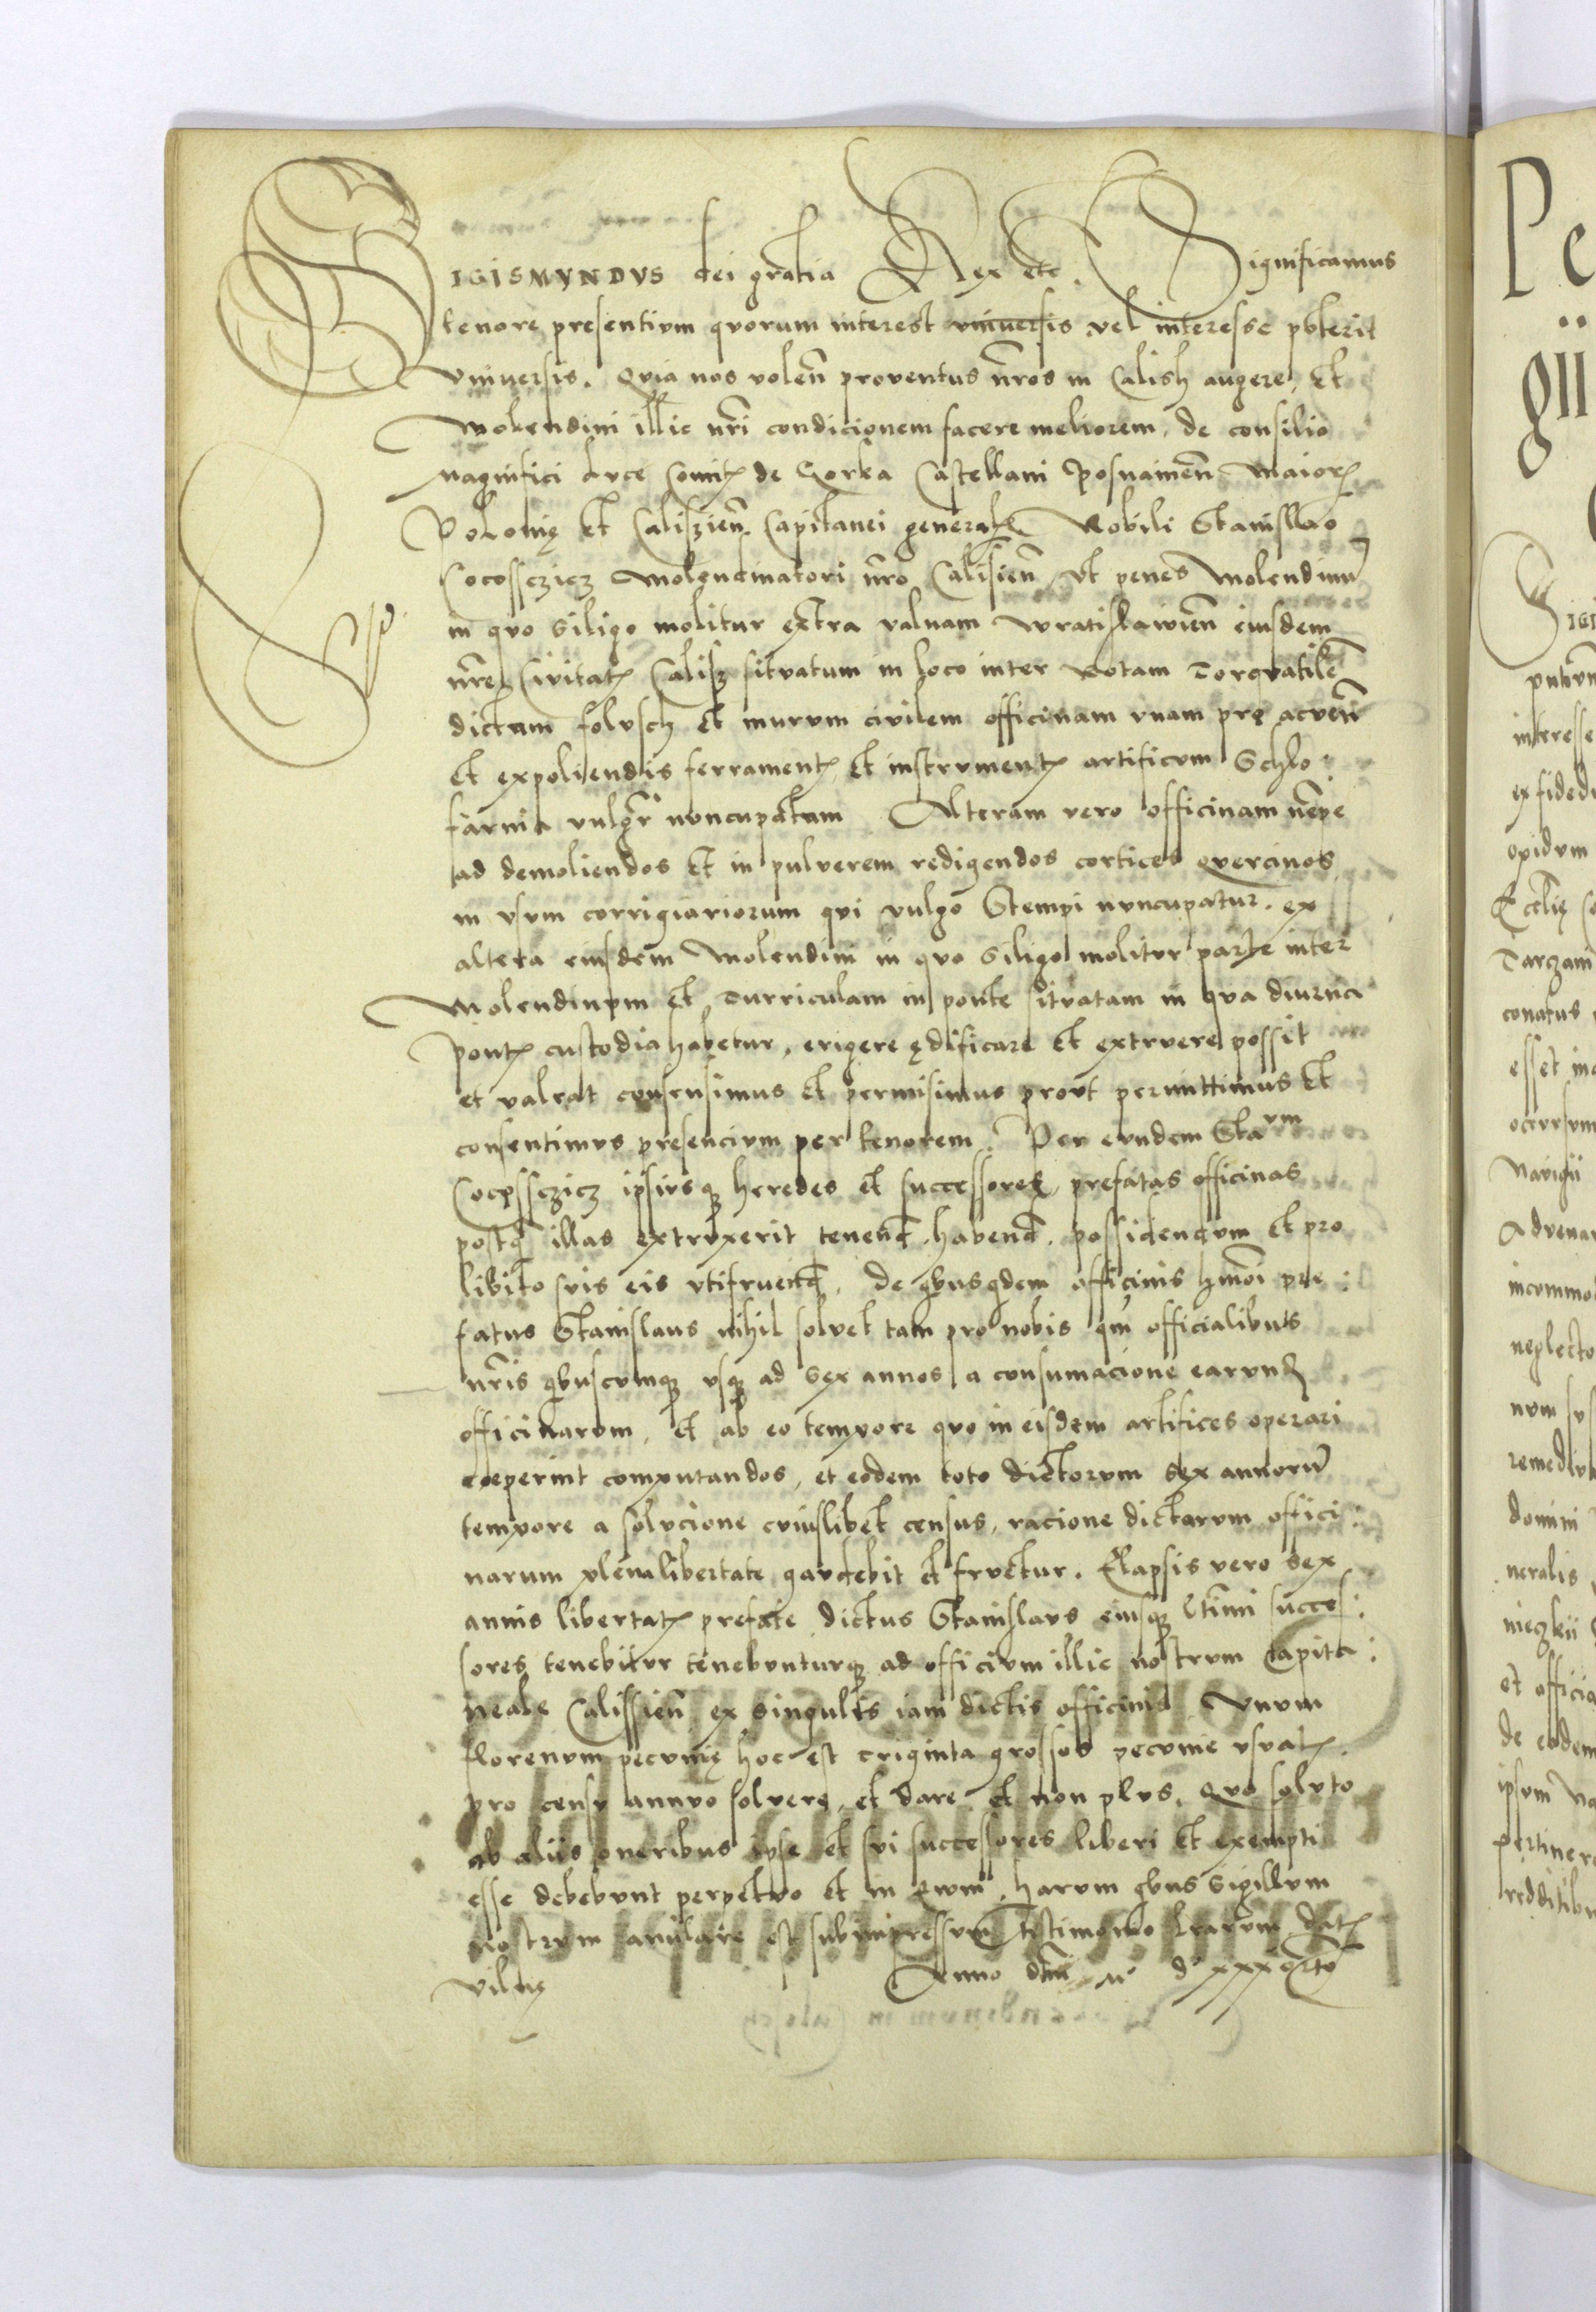 SIGISMVNDVS dei gratia Rex etc. Significamus
tenore presentivm qvorum interest vniversis vel interesse poterit
vniversis. Qvia nos volen̄ proventus nr̄os in Calish augere, et
Molendini illic nr̄i condicionem facere meliorem, de consilio
magnifici Luce Comit de Gorka Castellani Posnanien̄ Maior
Polonię et Caliszien̄ Capitanei general Nobili Stanislao
Cocossczicz Molendinatori nr̄o Calisien̄ vt penes Molendinū
in qvo siligo molitur extra valuam Wratislawien̄ eiusdem
nr̄e Civitat Calisz sitvatum in loco inter Rotam Torqvatilē
dictam folvsch et murvm civilem officinam vnam pro acven̄
et expoliendis ferrament et instrvment artificvm Schlo
farnia vulgr̄ nvncupatam Alteram vero officinam nēpe
ad demoliendos et in pulverem redigendos cortices qvercinos
in vsvm corrigiariorum qvi vulgo Stempi nvncupatur. ex
altera eiusdem Molendini in qvo siligo molitvr parte inter
Molendinvm et Turriculam in ponte sitvatam in qva diurna
pont custodia habetur, erigere ędificare et extrvere possit
et valeat consensimus et permisimus provt permittimus et
consentimvs presencivm per tenorem. Per evndem Stavm
Cocossczicz ipsivsq heredes et successores, prefatas officinas
postq illas extrvxerit tenend, habend, possidendvm et pro
libito svis eis vtifruend, de qbusqdem officinis hmōi pre
fatus Stanislaus nihil solvet tam pro nobis qm̄ officialibus
nr̄is qbuscvmq vsq ad sex annos a consumacione earvnd
officinarvm, et ab eo tempore qvo in eisdem artifices operari
ceperint computandos, et eodem toto dictorvm sex annorū
tempore a solvcione cviuslibet census, racione dictarvm offici
narum plena libertate gavdebit et frvetur. Elapsis vero sex
annis libertat prefate dictus Stanislavs eiusq ltīmi succes
sores tenebitvr tenebvnturq ad officivm illic nostrvm Capita
neale Calissien̄ ex singulis iam dictis officinis Vnvm
florenvm pecvnię hoc est triginta grossos pecvnie vsvat
pro censv annvo solvere, et dare et non plvs, Qvo solvto
ab aliis oneribus ipse et svi successores liberi et exempti
esse debebvnt perpetvo et in ęvvm, harvm qbus sigillvm
nostrvm anulare est subimpressvm testimonio lrarvm Dat
Vilnę Anno dn̄i M° d° xxx qrto